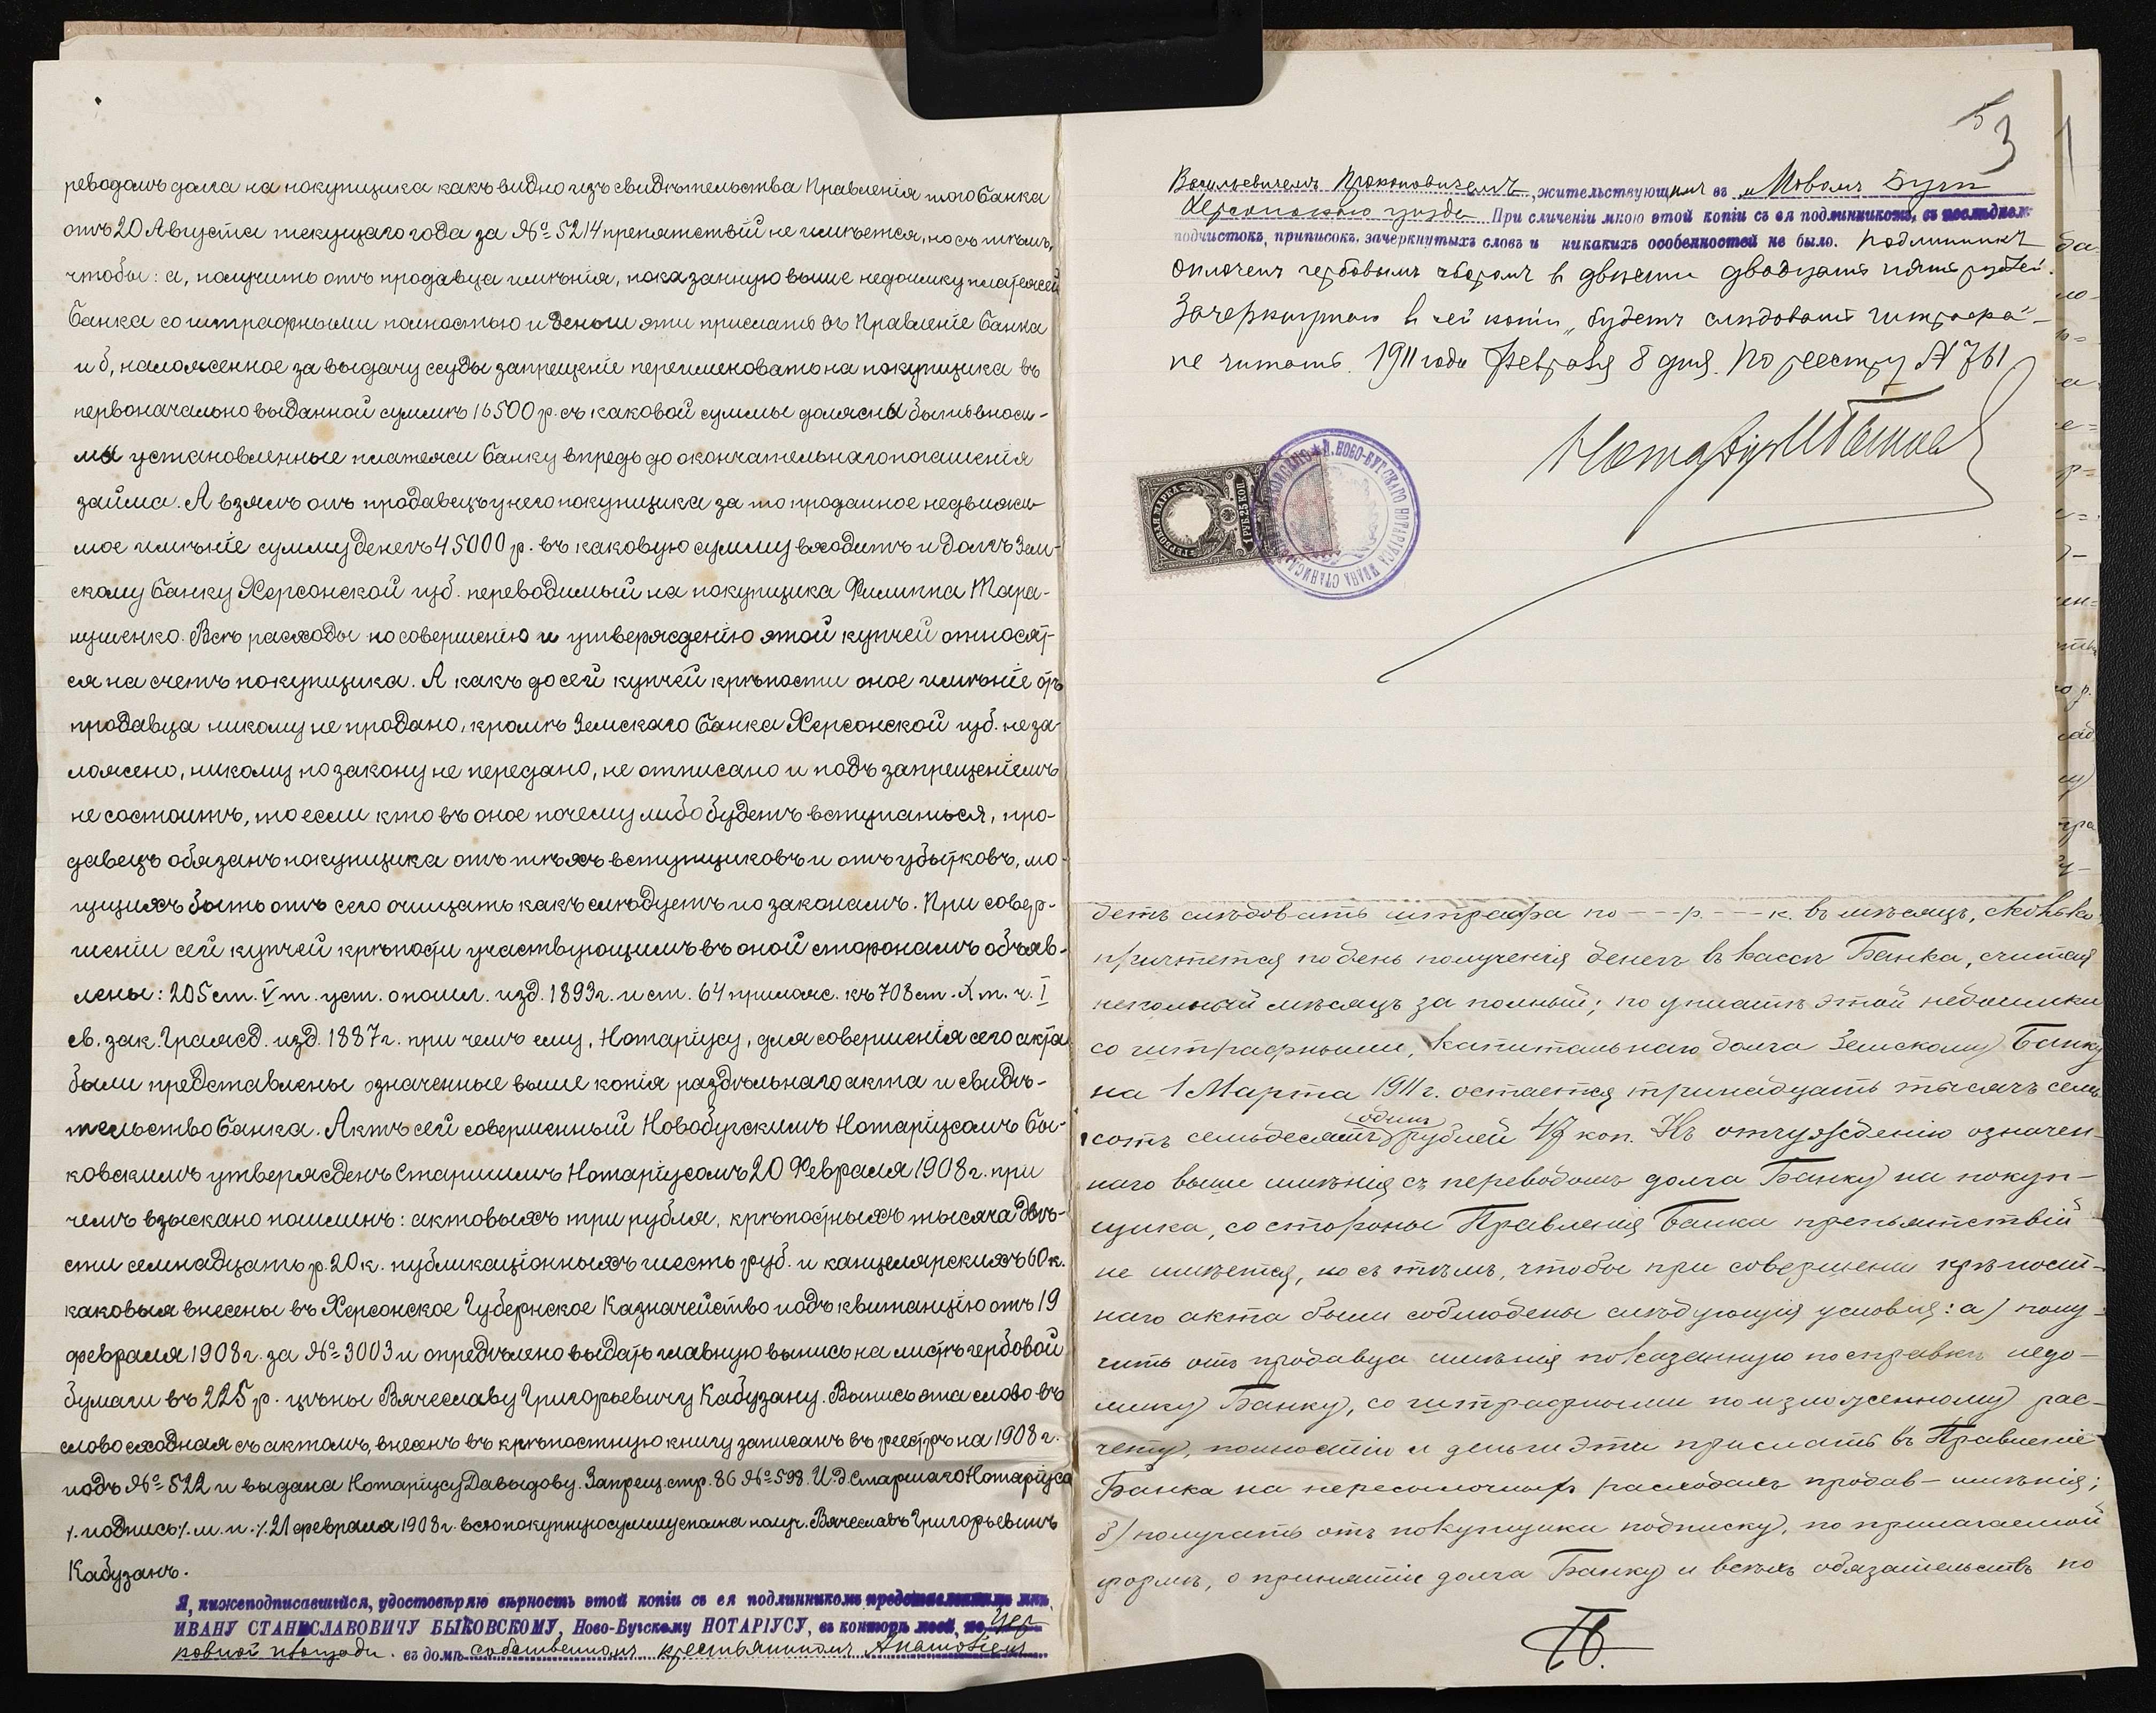 реводомъ долга на покупщика какъ видно изъ свидѣтельства Правленія того банка
отъ 20 Августа текущаго года за № 5214 препятствій не имѣется, но съ тѣмъ,
чтобы: а, получить отъ продавца имѣнія, показанную выше недоимку платежей
банка со штрафными полностью и деньги эти прислать въ Правленіе банка
и б, наложенное за выдачу ссуды запрещеніе переименовать на покупщика въ
первоначально выданной суммѣ 16500 р. съ каковой суммы должны быть вноси-
мы установленные платежи банку впредь до окончательнаго погашенія
займа. А взялъ онъ продавецъ у него покупщика за то проданное недвижи-
мое имѣніе сумму денегъ 45000 р. въ каковую сумму входитъ и долгъ Зем-
скому банку Херсонской губ. переводимый на покупщика Филиппа Тара-
нушенко. Всѣ расходы по совершенію и утвержденію этой купчей относят-
ся на счетъ покупщика. А какъ до сей купчей крѣпости оное имѣніе отъ
продавца никому не продано, кромѣ Земскаго банка Херсонской губ. не за-
ложено, никому по закону не передано, не отписано и подъ запрещеніемъ
не состоитъ, то если кто въ оное почему либо будетъ вступаться, про-
давецъ обязанъ покупщика отъ тѣхъ вступщиковъ и отъ убытковъ, мо-
гущихъ быть отъ сего очищать какъ слѣдуетъ по законамъ. При совер-
шеніи сей купчей крѣпости участвующимъ въ оной сторонамъ объяв-
лены: 205 ст. V т. уст. о пошл. изд. 1893 г. и ст. 64 примѣч. къ 708 ст. X т. ч. I
св. зак. Гражд. изд. 1887 г. при чемъ ему, Нотаріусу, для совершенія сего акта
были представлены означенные выше копія раздѣльнаго акта и свидѣ-
тельство банка. Актъ сей совершенный Новобугскимъ Нотаріусомъ Бы-
ковскимъ утвержденъ Старшимъ Нотаріусомъ 20 Февраля 1908 г. при
чемъ взыскано пошлинъ: актовыхъ три рубля, крѣпостныхъ тысяча двѣ-
сти семнадцать р. 20 к. публикаціонныхъ шесть руб. и канцелярскихъ 60 к.
каковыя внесены въ Херсонское Губернское Казначейство подъ квитанцію отъ 19
февраля 1908 г. за № 3003 и опредѣлено выдать главную выпись на листѣ гербовой
бумаги въ 225 р. цѣны Вячеславу Григорьевичу Кабузану. Выпись эта слово въ
слово сходная съ актомъ, внесенъ въ крѣпостную книгу записанъ въ реестръ на 1908 г.
подъ № 522 и выдана Нотаріусу Давыдову. Запрещ. стр. 86 № 598. И. д. Старшаго Нотаріуса
/. подпись /. м. п. /. 21 февраля 1908 г. всю покупную сумму сполна получ. Вячеславъ Григорьевичъ
Кабузанъ.
Я, нижеподписавшійся, удостовѣряю вѣрность этой копіи съ ея подлинникомъ представленнымъ мнѣ,
ИВАНУ СТАНИСЛАВОВИЧУ БЫКОВСКОМУ, Ново-Бугскому НОТАРІУСУ, въ конторѣ моей, по Цер-
ковной площади. въ домѣ собственномъ крестьяниномъ Анатоліемъ
5
3
Васильевичемъ Прокоповичемъ, жительствующимъ въ „Новомъ Бугѣ
Херсонскаго уѣзда При сличеніи мною этой копіи съ ея подлинникомъ, въ послѣднемъ
подчистокъ, приписокъ, зачеркнутыхъ словъ и никакихъ особенностей не было. Подлинникъ
оплоченъ гербовымъ сборомъ в двѣсти двадцать пять рублей.
Зачеркнутого в сей копіи „будетъ слѣдовать штрафа"-
не читать. 1911 года Февраля 8 дня. По реестру № 761
Нотаріусъ И Быков
ГЕРБОВАЯ МАРКА
1 РУБ. 25 КОП
П. НОВО-БУГСКАГО НОТАРІУСА ИВАНА СТАНИСЛАВОВИЧА БЫКОВСКАГО
детъ слѣдовать штрафа по --- р. --- к. въ мѣсяцъ, сколько
причтется по день полученія денегъ въ кассѣ Банка, считая
неполный мѣсяцъ за полный; по уплатѣ этой недоимки
со штрафными, капитальнаго долга Земскому Банку
на 1 Марта 1911 г. остается тринадцать тысячъ семь-
сотъ семьдесятъ (одинъ) рублей 47 коп. Къ отчужденію означен-
наго выше имѣнія съ переводомъ долга Банку на покуп-
щика, со стороны Правленія Банка препятствій
не имѣется, но съ тѣмъ, чтобы при совершеніи крѣпост-
наго акта были соблюдены слѣдующія условія: а) полу-
чить отъ продавца имѣнія показанную по справкѣ недо-
имку Банку, со штрафными по изложенному рас-
чету, полностію и деньги эти прислать въ Правленіе
Банка на пересылочнымъ расходамъ продав- имѣнія;
б) получать отъ покупщика подписку, по прилагаемой
формѣ, о принятіи долга Банку и всѣхъ обязательствъ по